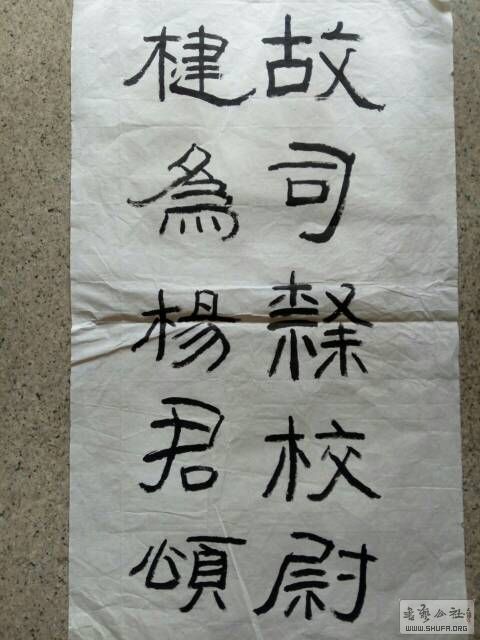 故司隸校尉
楗為楊君頌
书艺公社
WWW.SHUFA.ORG